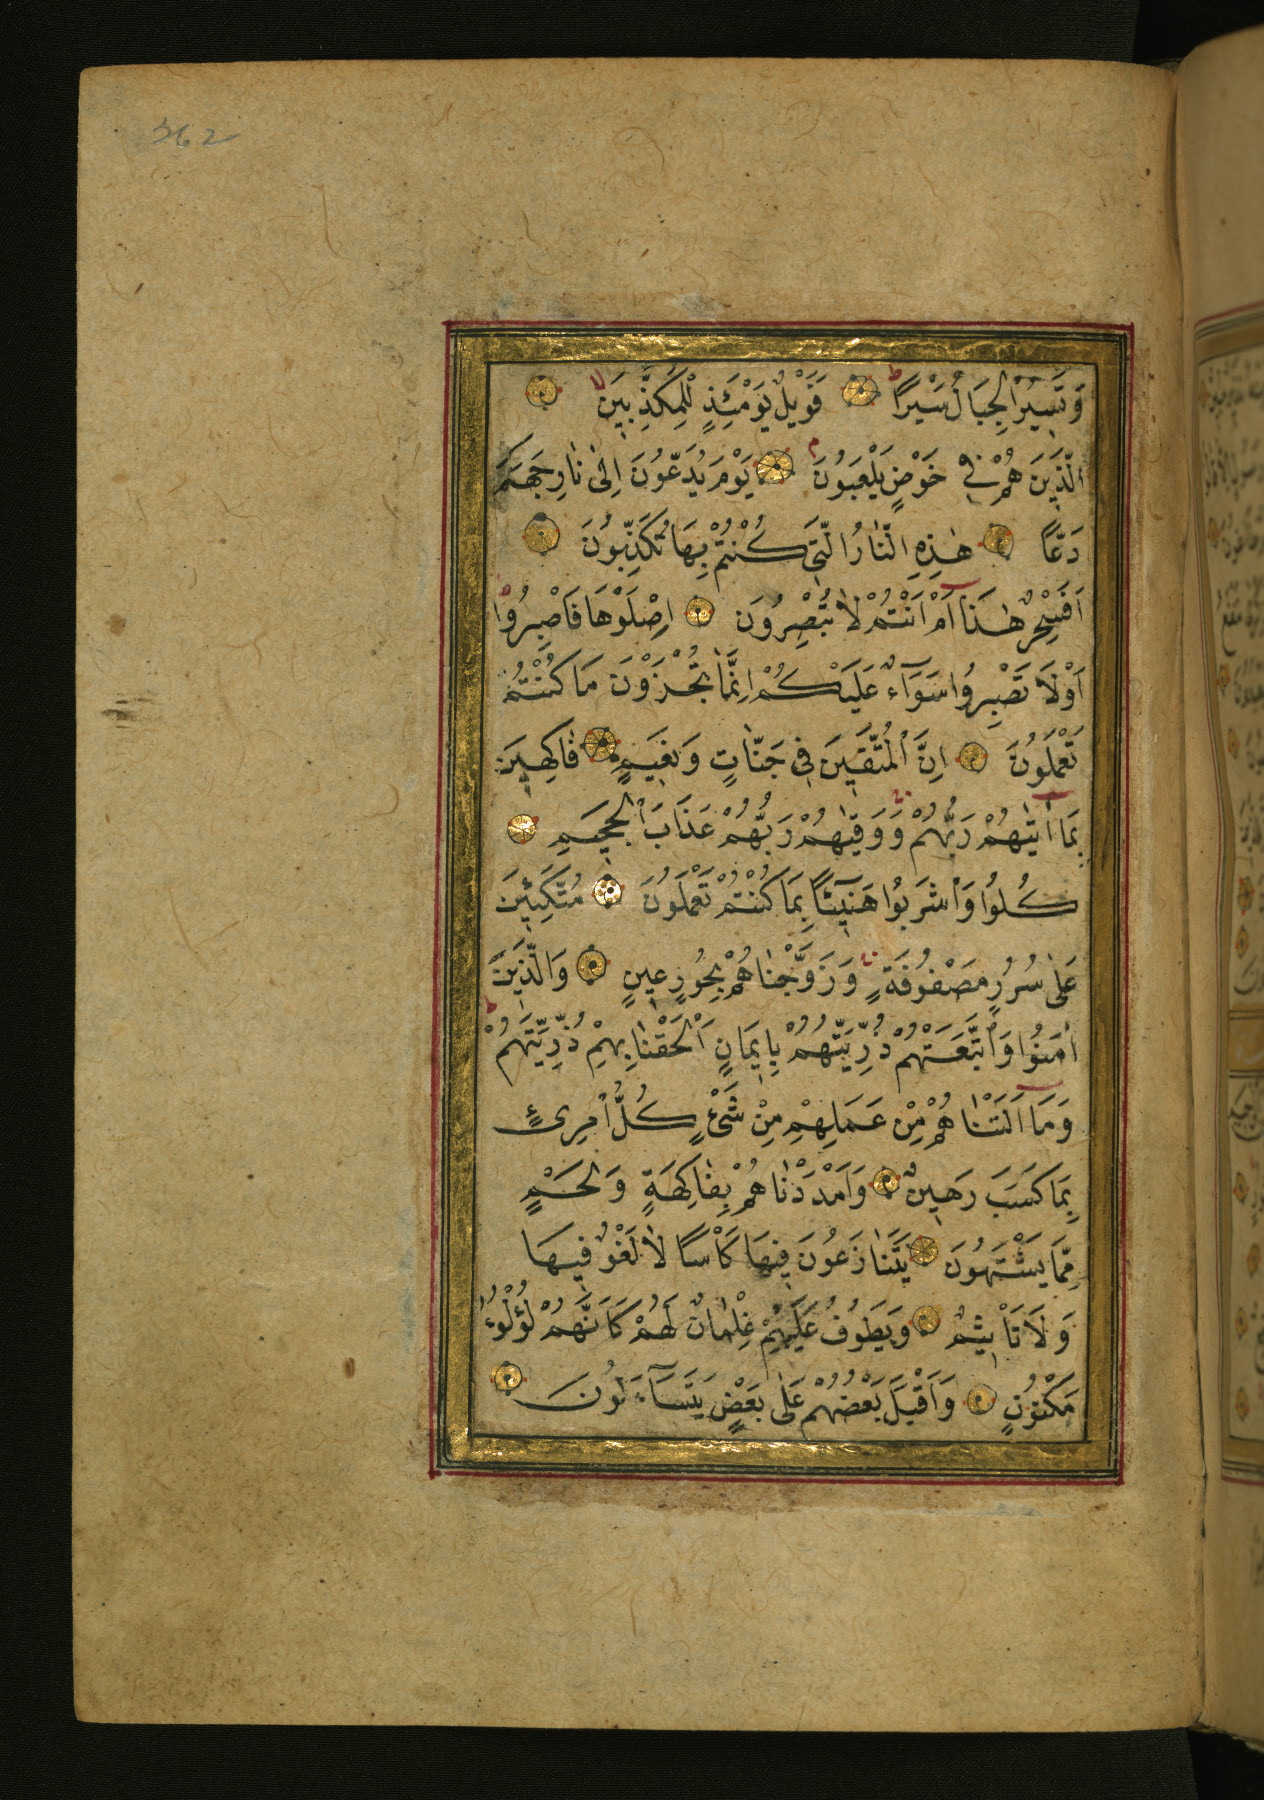 262
وَتَسِيرُ الْجِبَالُ سَيْرًا فَوَيْلٌ يَوْمَئِذٍ لِلْمُكَذِّبِينَ
الَّذِينَ هُمْ فِي خَوْضٍ يَلْعَبُونَ يَوْمَ يُدَعُّونَ اِلٰى نَارِ جَهَنَّمَ
دَعًّا هٰذِهِ النَّارُ الَّتِي كُنْتُمْ بِهَا تُكَذِّبُونَ
اَفَسِحْرٌ هٰذَا اَمْ اَنْتُمْ لَا تُبْصِرُونَ اِصْلَوْهَا فَاصْبِرُوا
اَوْ لَا تَصْبِرُوا سَوَآءٌ عَلَيْكُمْ اِنَّمَا تُجْزَوْنَ مَا كُنْتُمْ
تَعْمَلُونَ اِنَّ الْمُتَّقِينَ فِي جَنَّاتٍ وَنَعِيمٍ فَاكِهِينَ
بِمَا اٰتٰيهُمْ رَبُّهُمْ وَوَقٰيهُمْ رَبُّهُمْ عَذَابَ الْجَحِيمِ
كُلُوا وَاشْرَبُوا هَنِيٓئًا بِمَا كُنْتُمْ تَعْمَلُونَ مُتَّكِئِينَ
عَلٰى سُرُرٍ مَصْفُوفَةٍ وَزَوَّجْنَاهُمْ بِحُورٍ عِينٍ وَالَّذِينَ
اٰمَنُوا وَاتَّبَعَتْهُمْ ذُرِّيَّتُهُمْ بِاِيمَانٍ اَلْحَقْنَا بِهِمْ ذُرِّيَّتَهُمْ
وَمَا اَلَتْنَاهُمْ مِنْ عَمَلِهِمْ مِنْ شَيْءٍ كُلُّ امْرِئٍ
بِمَا كَسَبَ رَهِينٌ وَاَمْدَدْنَاهُمْ بِفَاكِهَةٍ وَلَحْمٍ
مِمَّا يَشْتَهُونَ يَتَنَازَعُونَ فِيهَا كَاْسًا لَا لَغْوٌ فِيهَا
وَلَا تَاْثِيمٌ وَيَطُوفُ عَلَيْهِمْ غِلْمَانٌ لَهُمْ كَاَنَّهُمْ لُؤْلُؤٌ
مَكْنُونٌ وَاَقْبَلَ بَعْضُهُمْ عَلٰى بَعْضٍ يَتَسَآءَلُونَ